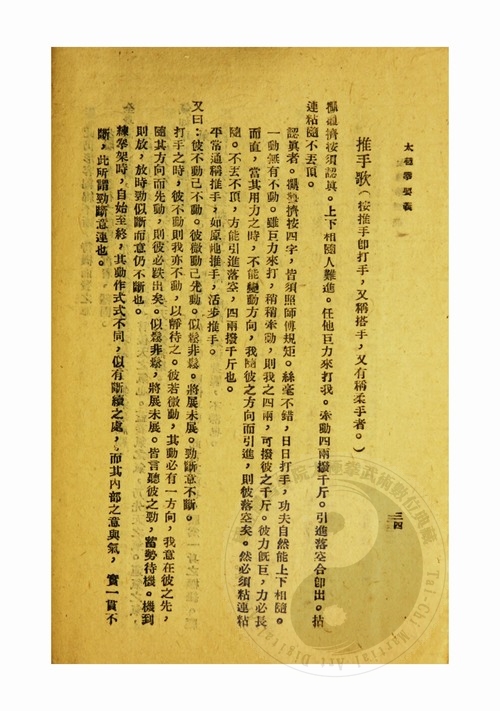 太極拳要義
三四
推手歌(按推手卽打手，又稱搭手，又有稱柔手者。)
掤握擠按須認眞。上下相隨人難進。任他巨力來打我。牽動四兩撥千斤。引進落空合卽出。拈
連粘隨不丟頂。
認眞者。掤握擠按四字，皆須照師傅規矩。絲毫不錯，日日打手，功夫自然能上下相隨。
一動無有不動。雖巨力來打，稍稍牽動，則我之四兩，可撥彼之千斤。彼力旣巨，力必長
而直，當其用力之時，不能變動方向，我隨彼之方向而引進，則彼落空矣。然必須粘連粘
隨。不丟不頂，方能引進落空，四兩撥千斤也。
平常通稱推手，如原地推手，活步推手。
又曰：彼不動己不動。彼微動己先動。似鬆非鬆。將展未展。勁斷意不斷。
打手之時，彼不動則我亦不動，以靜待之。彼若微動，其動必有一方向，我意在彼之先，
隨其方向而先動，則彼必跌出矣。似鬆非鬆，將展未展。皆言聽彼之勁，當勢待機。機到
則放，放時勁似斷而意仍不斷也。
練拳架時，自始至終，其動作式式不同，似有斷續之處，而其內部之意與氣，實一貫不
斷，此所謂勁斷意連也。